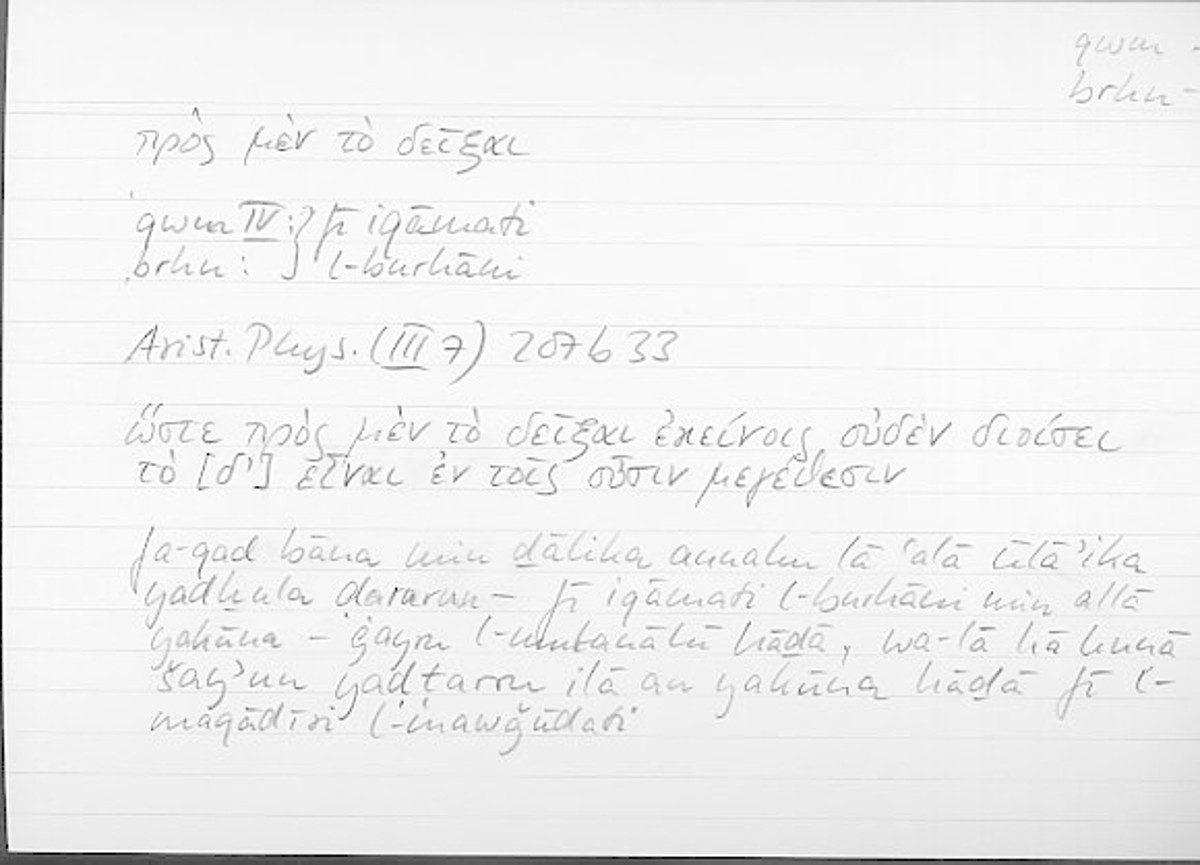 qwm -
brhn -
πρὸς μὲν τὸ δεῖξαι
qwm IV : } fī iqāmati
brhn : } l-burhāni
Arist. Phys. (III 7) 207b33
ὥστε πρὸς μὲν τὸ δεῖξαι ἐκείνοις οὐδὲν διοίσει
τὸ [δ'] εἶναι ἐν τοῖς οὖσιν μεγέθεσιν
fa-qad bāna min ḏālika annahu lā ʿalā ūlāʾika
yadḫula ḍararun – fī iqāmati l-burhāni min allā
yakūna – ġayru l-mutanāhī hāḏā, wa-lā hāhunā
šayʾun yaḍtarru ilā an yakūna hāḏā fī l-
maqādīri l-mawǧūdati